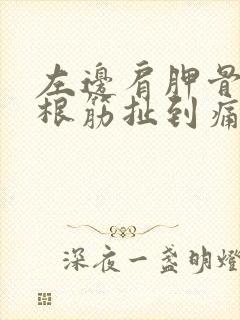 左邊肩胛骨
根筋扯到痛
深夜一盞明燈